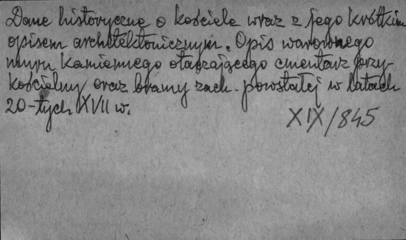 Dane historyczne o kościele wraz z jego krótkim
opisem architektonicznym. Opis warownego
muru kamiennego otaczającego cmentarz przy-
kościelny oraz bramy zach. powstałej w latach
20-tych XVII w.
XIX/845